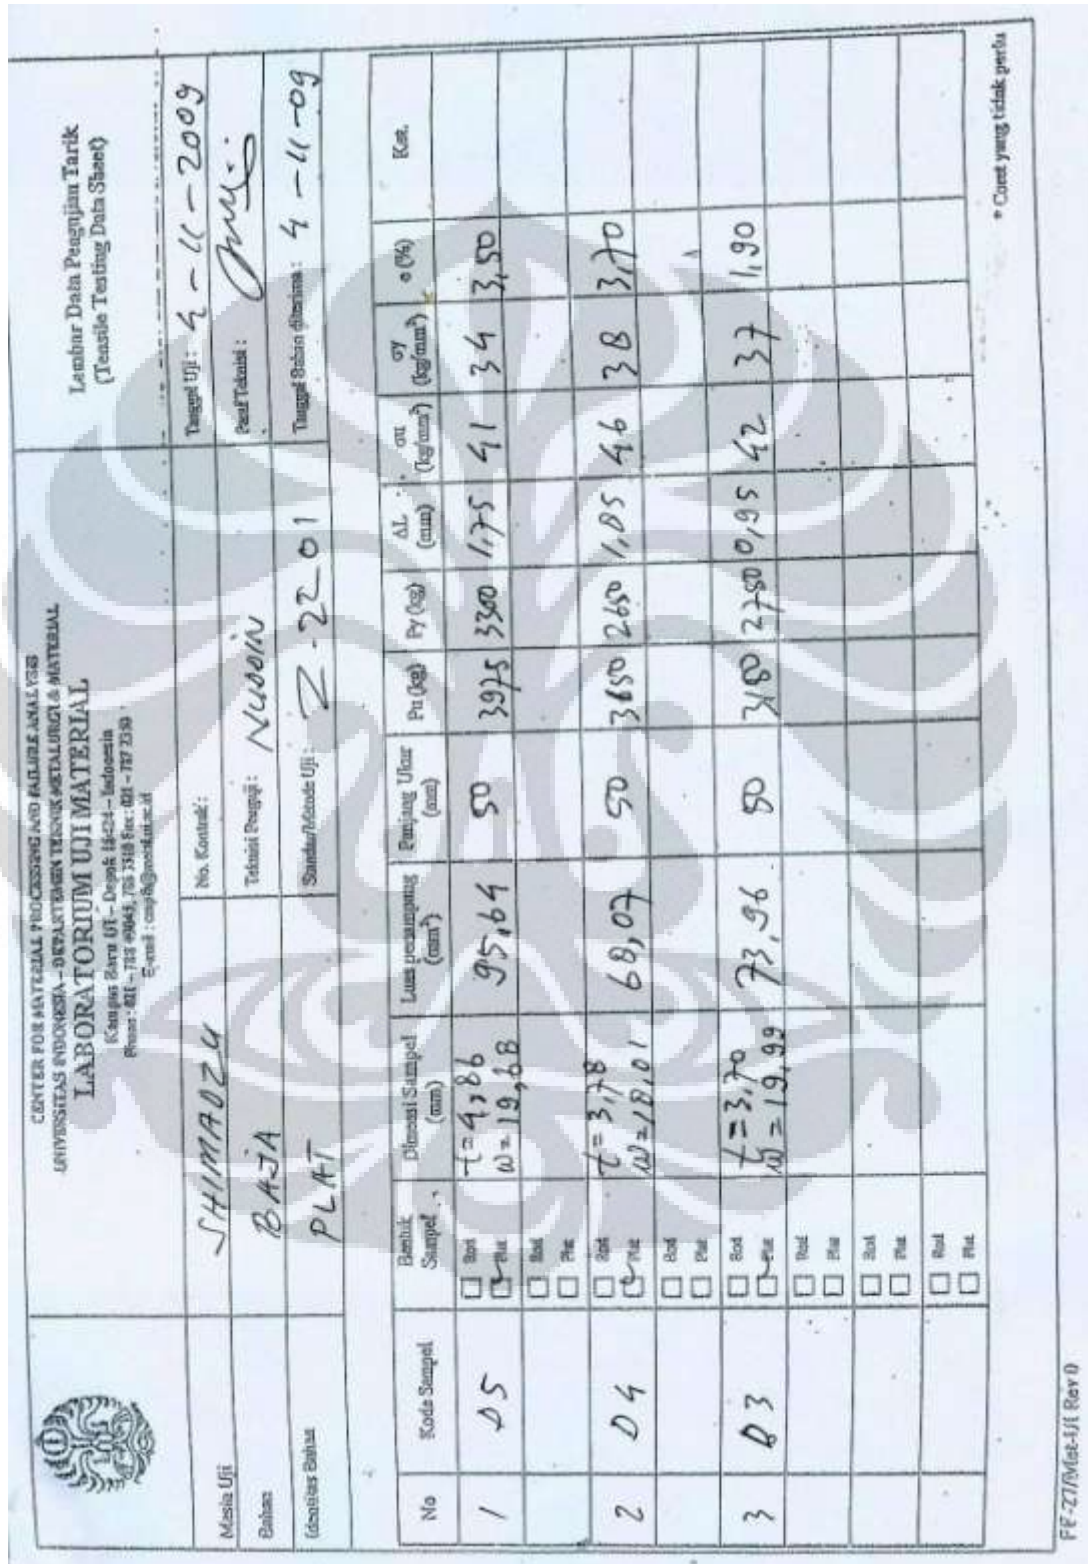 CENTER FOR MATERIAL PROCESSING AND FAILURE ANALYSES
UNIVERSITAS INDONESIA – DEPARTEMEN TEKNIK METALURGI & MATERIAL
LABORATORIUM UJI MATERIAL
Kampus Baru UI – Depok 16424 – Indonesia
Lembar Data Pengujian Tarik
(Tensile Testing Data Sheet)
Mesin Uji SHIMADZU No. Kontrak : Tanggal Uji : 4 - 11 - 2009
Bahan BAJA Teknisi Penguji : Paraf Teknisi :
Identitas Bahan PLAT Standar/Metode Uji : Z - 2201 Tanggal Bahan diterima : 4 - 11 - 09
No Kode Sampel Bentuk Sampel Dimensi Sampel (mm) Luas penampang (mm²) Panjang Ukur (mm) Pu (kg) Py (kg) ΔL (mm) σu (kg/mm²) σy (kg/mm²) e (%) Ket.
1 D5 Rod Plat t = 4,86 w = 19,68 95,64 50 3975 3300 1,75 41 34 3,50
Rod Plat
2 D4 Rod Plat t = 3,78 w = 18,01 68,07 50 2650 1,85 46 38 3,70
Rod Plat
3 D3 Rod Plat t = 3,70 w = 19,99 73,96 50 2750 0,95 42 37 1,90
Rod Plat
Rod Plat
Rod Plat
* Coret yang tidak perlu